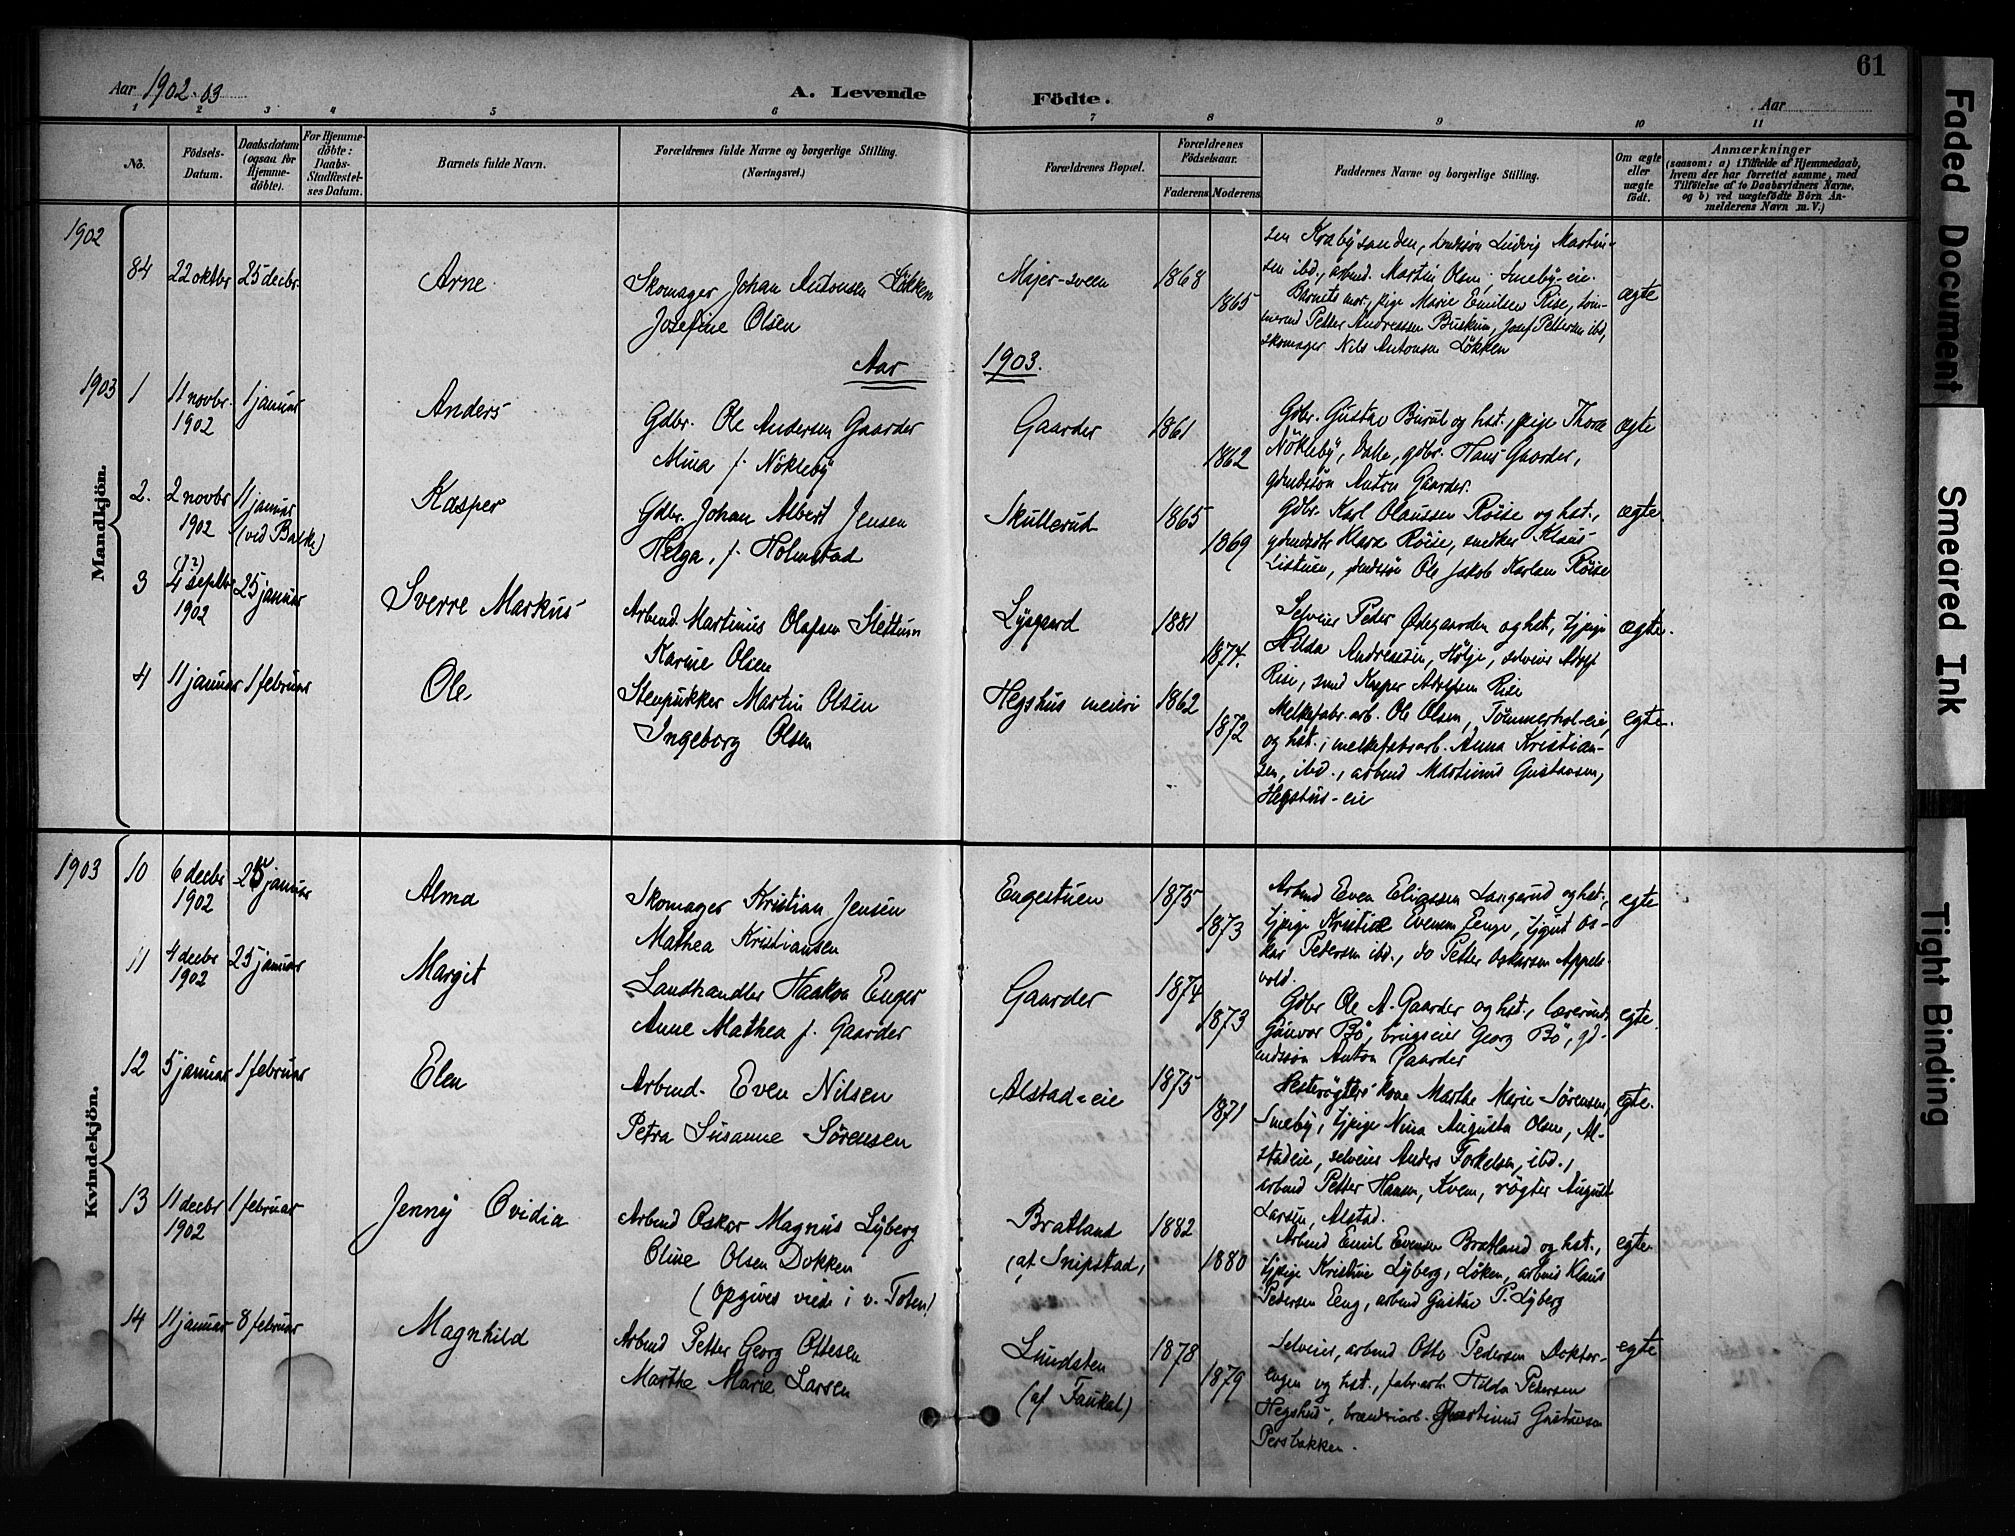 61
Aar 1902-03
A. Levende Födte.
Aar
1 2 3 4 5 6 7 8 9 10 11
No.
Födsels-Datum.
Daabsdatum (ogsaa for Hjemme-döbte).
For Hjemme-döbte: Daabs-Stadfæstel-ses Datum.
Barnets fulde Navn.
Forældrenes fulde Navne og borgerlige Stilling. (Næringsvei.)
Forældrenes Bopæl.
Forældrenes Födselsaar.
Faderens Moderens
Faddernes Navne og borgerlige Stilling.
Om ægte eller uægte födt.
Anmærkninger
(saasom: a) i Tilfælde af Hjemmedaab,
hvem der har forrettet samme, med
Tilföielse af to Daabsvidners Navne,
og b) ved uægtefödte Börn An-
melderens Navn m. V.)
Mandkjön.
1902
84 22 oktbr 25 decbr. Arne
Skomager Johan Antonsen Løkken
Josefine Olsen
Majer-sveen 1868 1865
sen Krabysanden, Ludvig Martin-
sen ibd., arbmd. Martin Olsen, Smeby-eie.
Barnets mor, pige Marie Emilsen Rise, töm-
mermd Petter Andreassen Buskum, Josef Pettersen ibd,
skomager Nils Antonsen Løkken
ægte
Aar 1903.
1903
1 11 novbr. 1902 1 januar Anders
Gdbr. Ole Andersen Gaarder
Mina f. Nökleby
Gaarder 1861 1862
Gdbr. Gustav Burul og hst., pige Thora
Nökleby, Balke, gdbr. Hans Gaarder,
gdmdssön Anton Gaarder.
ægte
2. 2 novbr 1902 11 januar (ved Balke) Kasper
Gdbr. Johan Albert Jensen
Helga, f. Holmstad
Skullerud 1865 1869
Gdbr. Karl Olaussen Röise og hst.,
gdmdsdtr Klara Röise, snedker Klaus
Listuen, gdmdssön Ole Jakob Karlsen Röise
ægte.
3 (?) 4 septbr 1902 25 januar Sverre Markus
Arbmd. Martinus Olafsen Slettum
Karine Olsen
Lysgaard 1881 1874.
Selveier Peder Ødegaarden og hst., tjpige
Hilda Andreassen, Hölje, selveier Adolf
Rise, smed Kasper Adolfsen Rise
ægte.
4 11 januar 1 februar Ole
Stenpukker Martin Olsen
Ingeborg Olsen
Hegshus meieri 1862 1872
Melkefabr. arb. Ole Olsen, Tömmerhol-eie,
og hst., melkefabrarb. Anna Kristian-
sen, ibd., arbmd Martinus Gustavsen,
Hegshus-eie
egte.
Kvindekjön.
1903
10 6 decbr 1902 25 januar Alma
Skomager Kristian Jensen
Mathea Kristiansen
Engestuen 1875 1873
Arbmd Even Eliassen Langerud og hst.,
tjpige Kristine Evensen Eenge, tjgut Os-
kar Pedersen ibd., do Petter Oskarsen Appels-
vold.
egte
11 4 decbr 1902 25 januar Margit
Landhandler Haakon Enger
Anne Mathea f. Gaarder
Gaarder 1874 1873
Gdbr Ole A. Gaarder og hst., lærerinde
Gunvor Bö, brugseier Georg Bö, gd-
mdssön Anton Gaarder
egte.
12 5 januar 1 februar Elen
Arbmd. Even Nilsen
Petra Susanne Sörensen
Alstad-eie 1875 1871
Hesterögters kone Marthe Marie Sörensen,
Smeby, tjpige Nina Augusta Olsen, Al-
stadeie, selveier Anders Torkelsen, ibd.,
arbmd Petter Hansen, Kvem, rögter August
Larsen, Alstad.
egte.
13 11 decbr 1902 1 februar Jenny Ovidia
Arbmd Oskar Magnus Lyberg
Oline Olsen Dokken
(Opgives viede i v. Toten)
Bratland
(af Snipstad) 1882 1880
Arbmd Emil Evensen Bratland og hst.,
tjpige Kristine Lyberg, Löken, arbmd Klaus
Pedersen Eeng, arbmd Gustav P. Lyberg
egte.
14 11 januar 8 februar Magnhild
Arbmd Petter Georg Ottesen
Marthe Marie Larsen
Lundsten
(af Faukal) 1878 1879
Selveier, arbmd Otto Pedersen Doktor-
engen og hst., fabr.arb. Hilda Petersen
Hegshus, brænderiarb. Martinus Gustavsen
Persbakken.
egte
Faded Document
Smeared Ink
Tight Binding